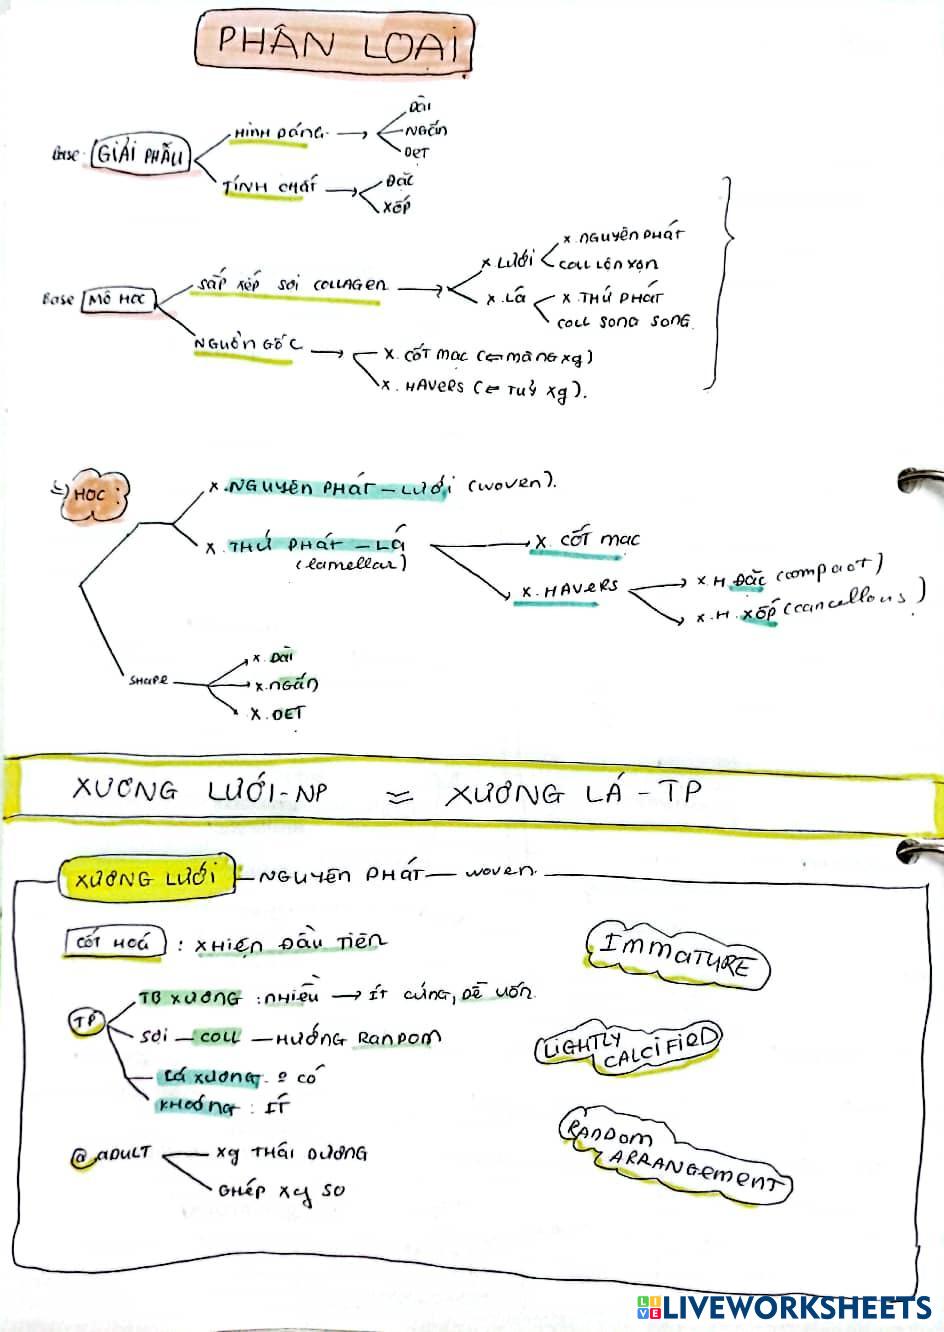 PHÂN LOẠI
Base: GIẢI PHẪU
HÌNH DÁNG → DÀI
NGẮN
DẸT
TÍNH CHẤT → ĐẶC
XỐP
Base MÔ HỌC
SẮP XẾP SỢI COLLAGEN → X LƯỚI
X. NGUYÊN PHÁT
COLL LỘN XỘN
X. LÁ
X. THỨ PHÁT
COLL SONG SONG.
NGUỒN GỐC → X. CỐT MẠC (⇐ MÀNG Xg)
X. HAVERS (⇐ TUỶ Xg).
=) HỌC :
X. NGUYÊN PHÁT - LƯỚI (woven).
X. THỨ PHÁT - LÁ
(lamellar)
X. CỐT MẠC
X. HAVERS
X H ĐẶC (compact)
X. H. XỐP (cancellous)
SHAPE
X. DÀI
X. NGẮN
X. DẸT
XƯƠNG LƯỚI-NP = XƯƠNG LÁ-TP
XƯƠNG LƯỚI - NGUYÊN PHÁT - woven.
CỐT HOÁ : XHIỆN ĐẦU TIÊN
TP
TB XƯƠNG : NHIỀU → ÍT CỨNG, DỄ UỐN.
SỢI - COLL - HƯỚNG RANDOM
LÁ XƯƠNG. CÓ
KHOÁNG : ÍT
@ ADULT
Xg THÁI DƯƠNG
GHÉP Xg SỌ
IMMATURE
LIGHTLY CALCIFIED
RANDOM ARRANGEMENT
LIVEWORKSHEETS